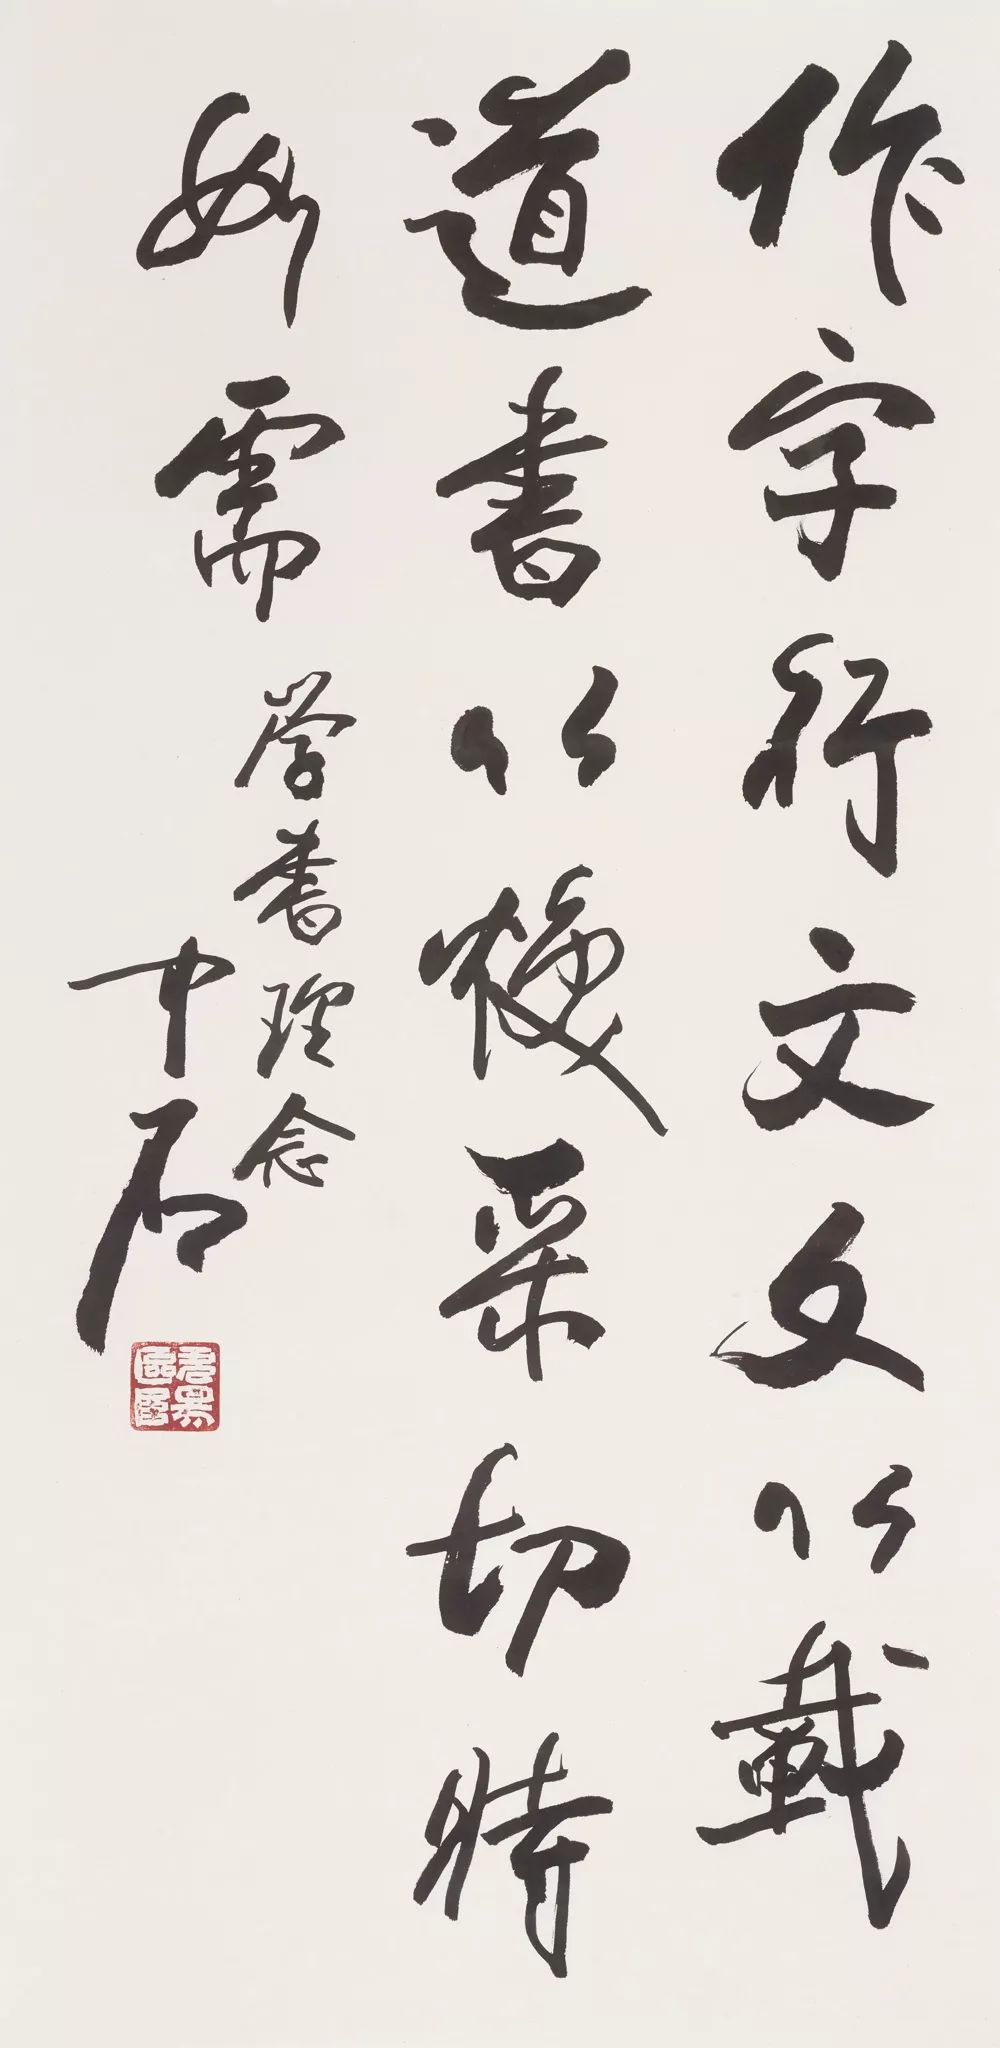 作字行文文以載
道書以煥采切時
如需
学書理念
中石